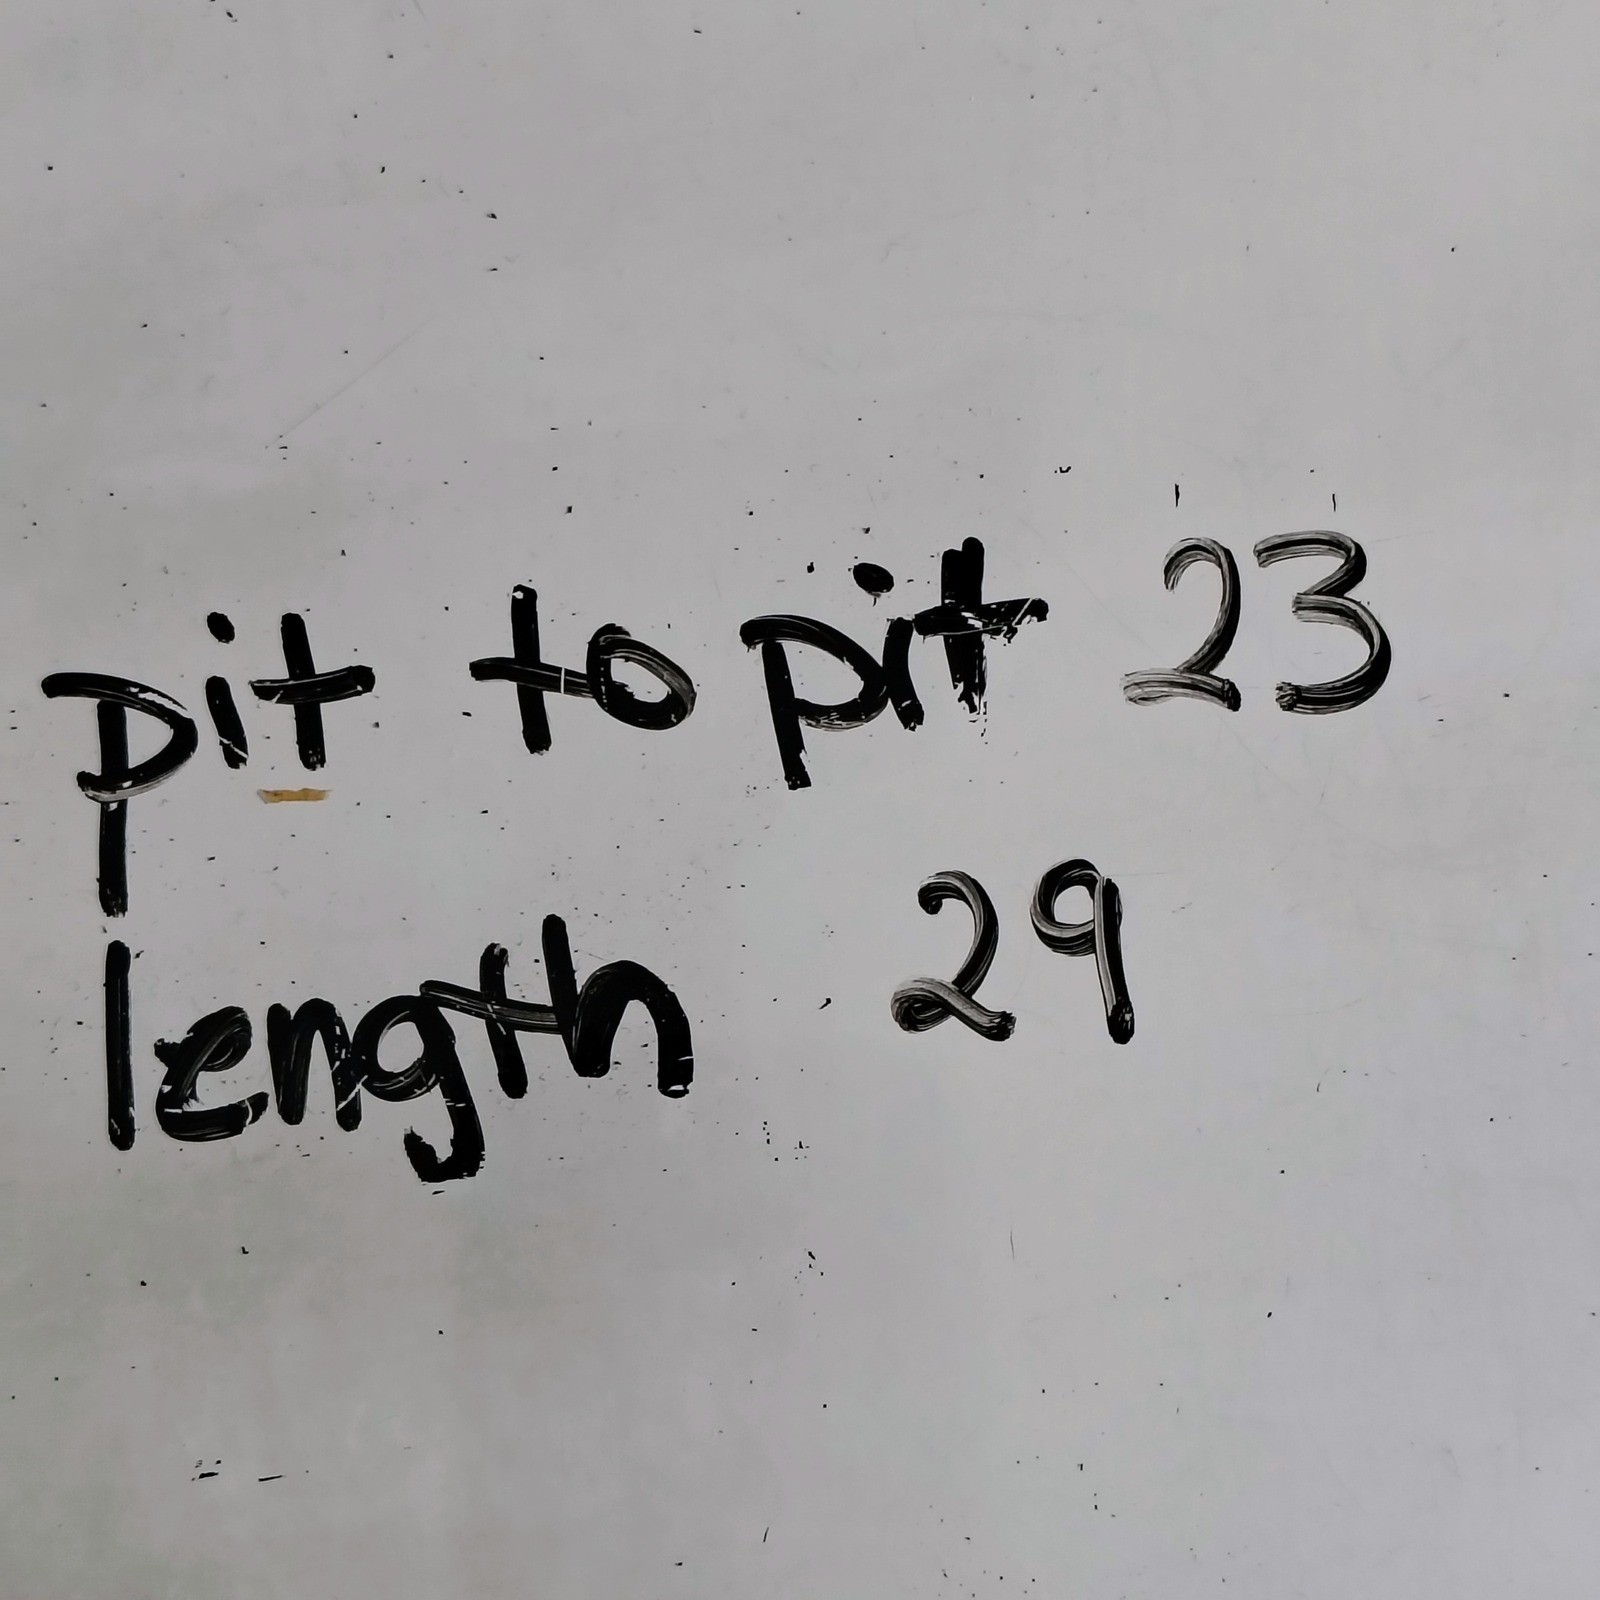 pit to pit 23
length 29